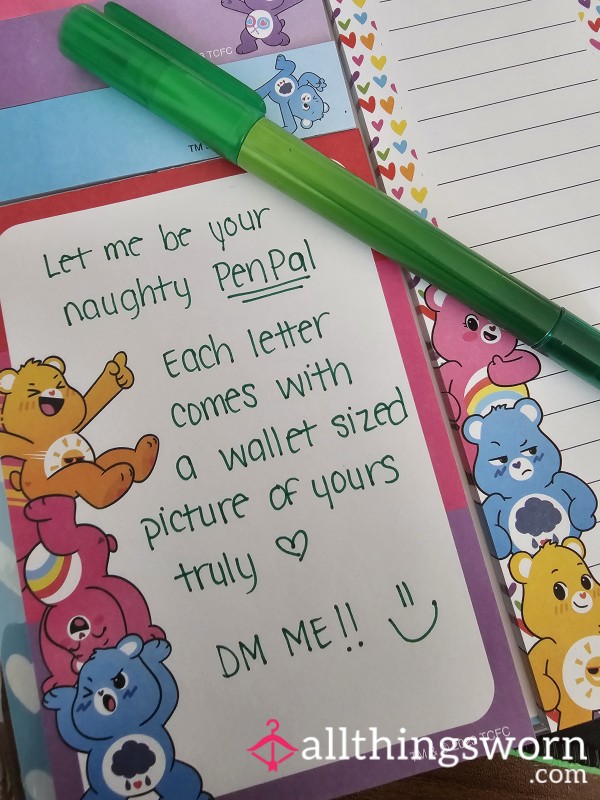 TCFC
TM &
Let me be your
naughty PenPal
Each letter
comes with
a wallet sized
picture of yours
truly ♡
DM ME!! =)
TCFC
allthingsworn
.com